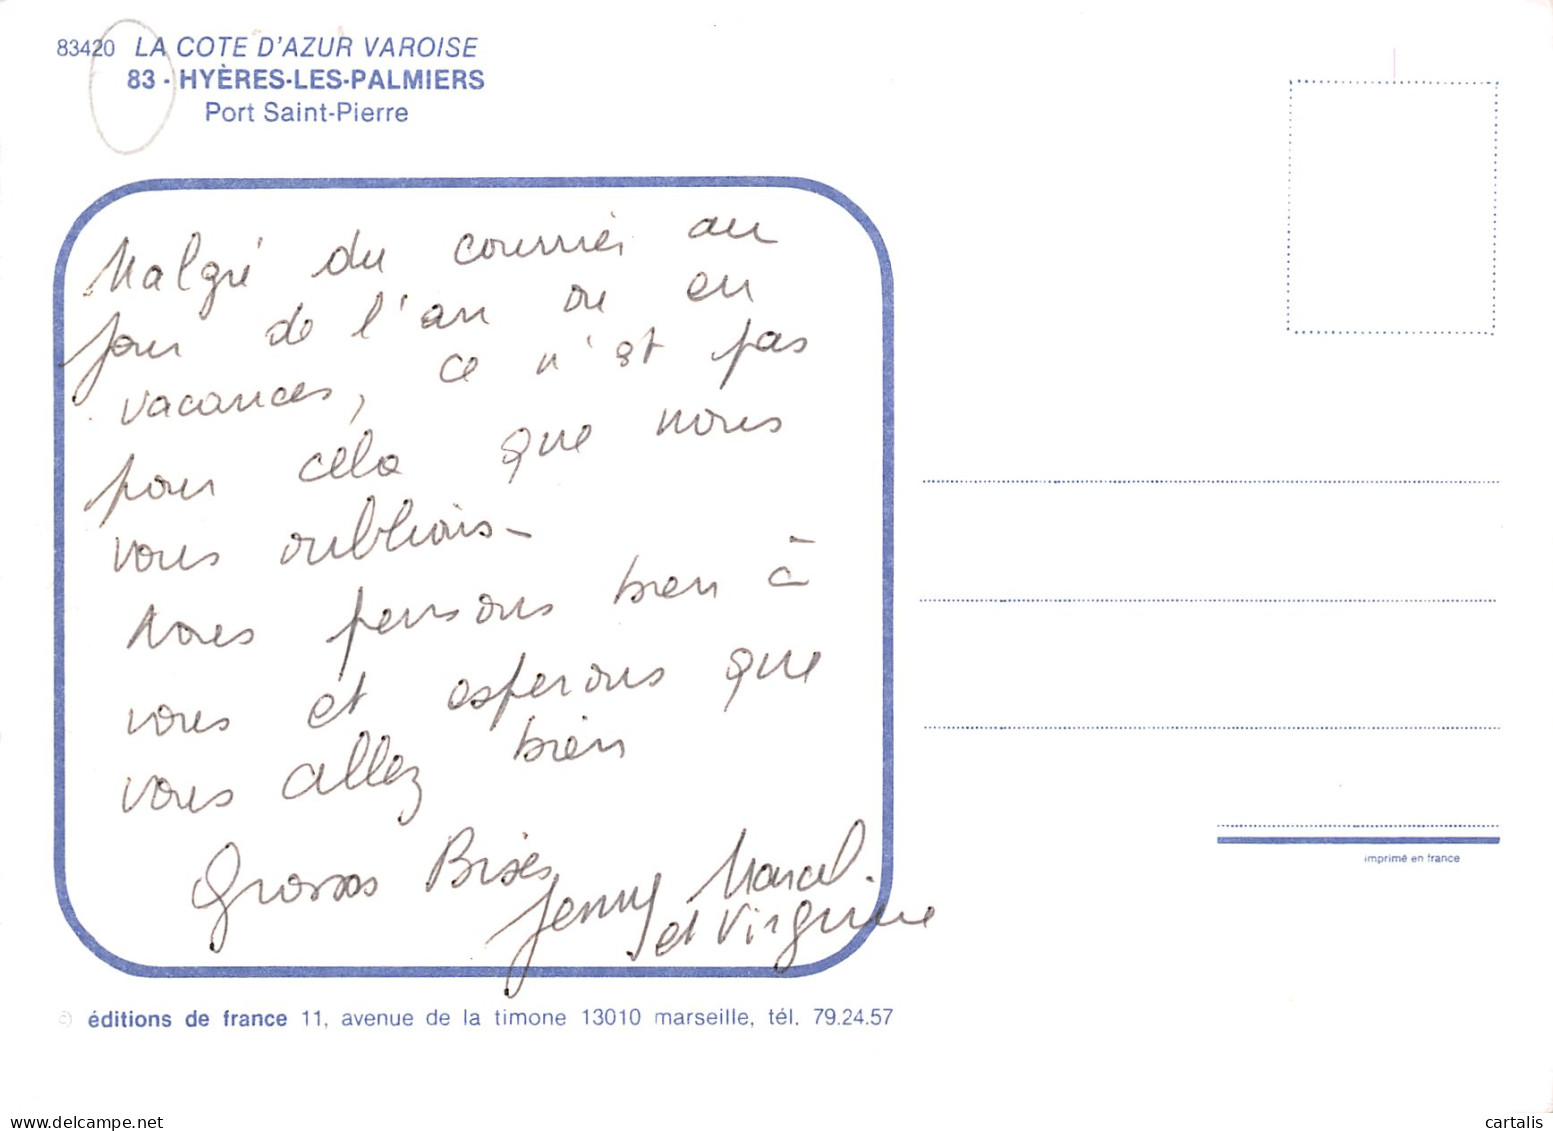 83420 LA COTE D'AZUR VAROISE
83 - HYÈRES-LES-PALMIERS
Port Saint-Pierre
Malgré du courrier au
jour de l'an ou en
vacances, ce n'est pas
pour cela que nous
vous oublions -
Nous pensons bien à
vous et esperons que
vous allez bien
Grosses Bises
Jenny Marcel.
et Virginie
imprimé en france
© éditions de france 11, avenue de la timone 13010 marseille, tél. 79.24.57
delcampe.net
cartalis